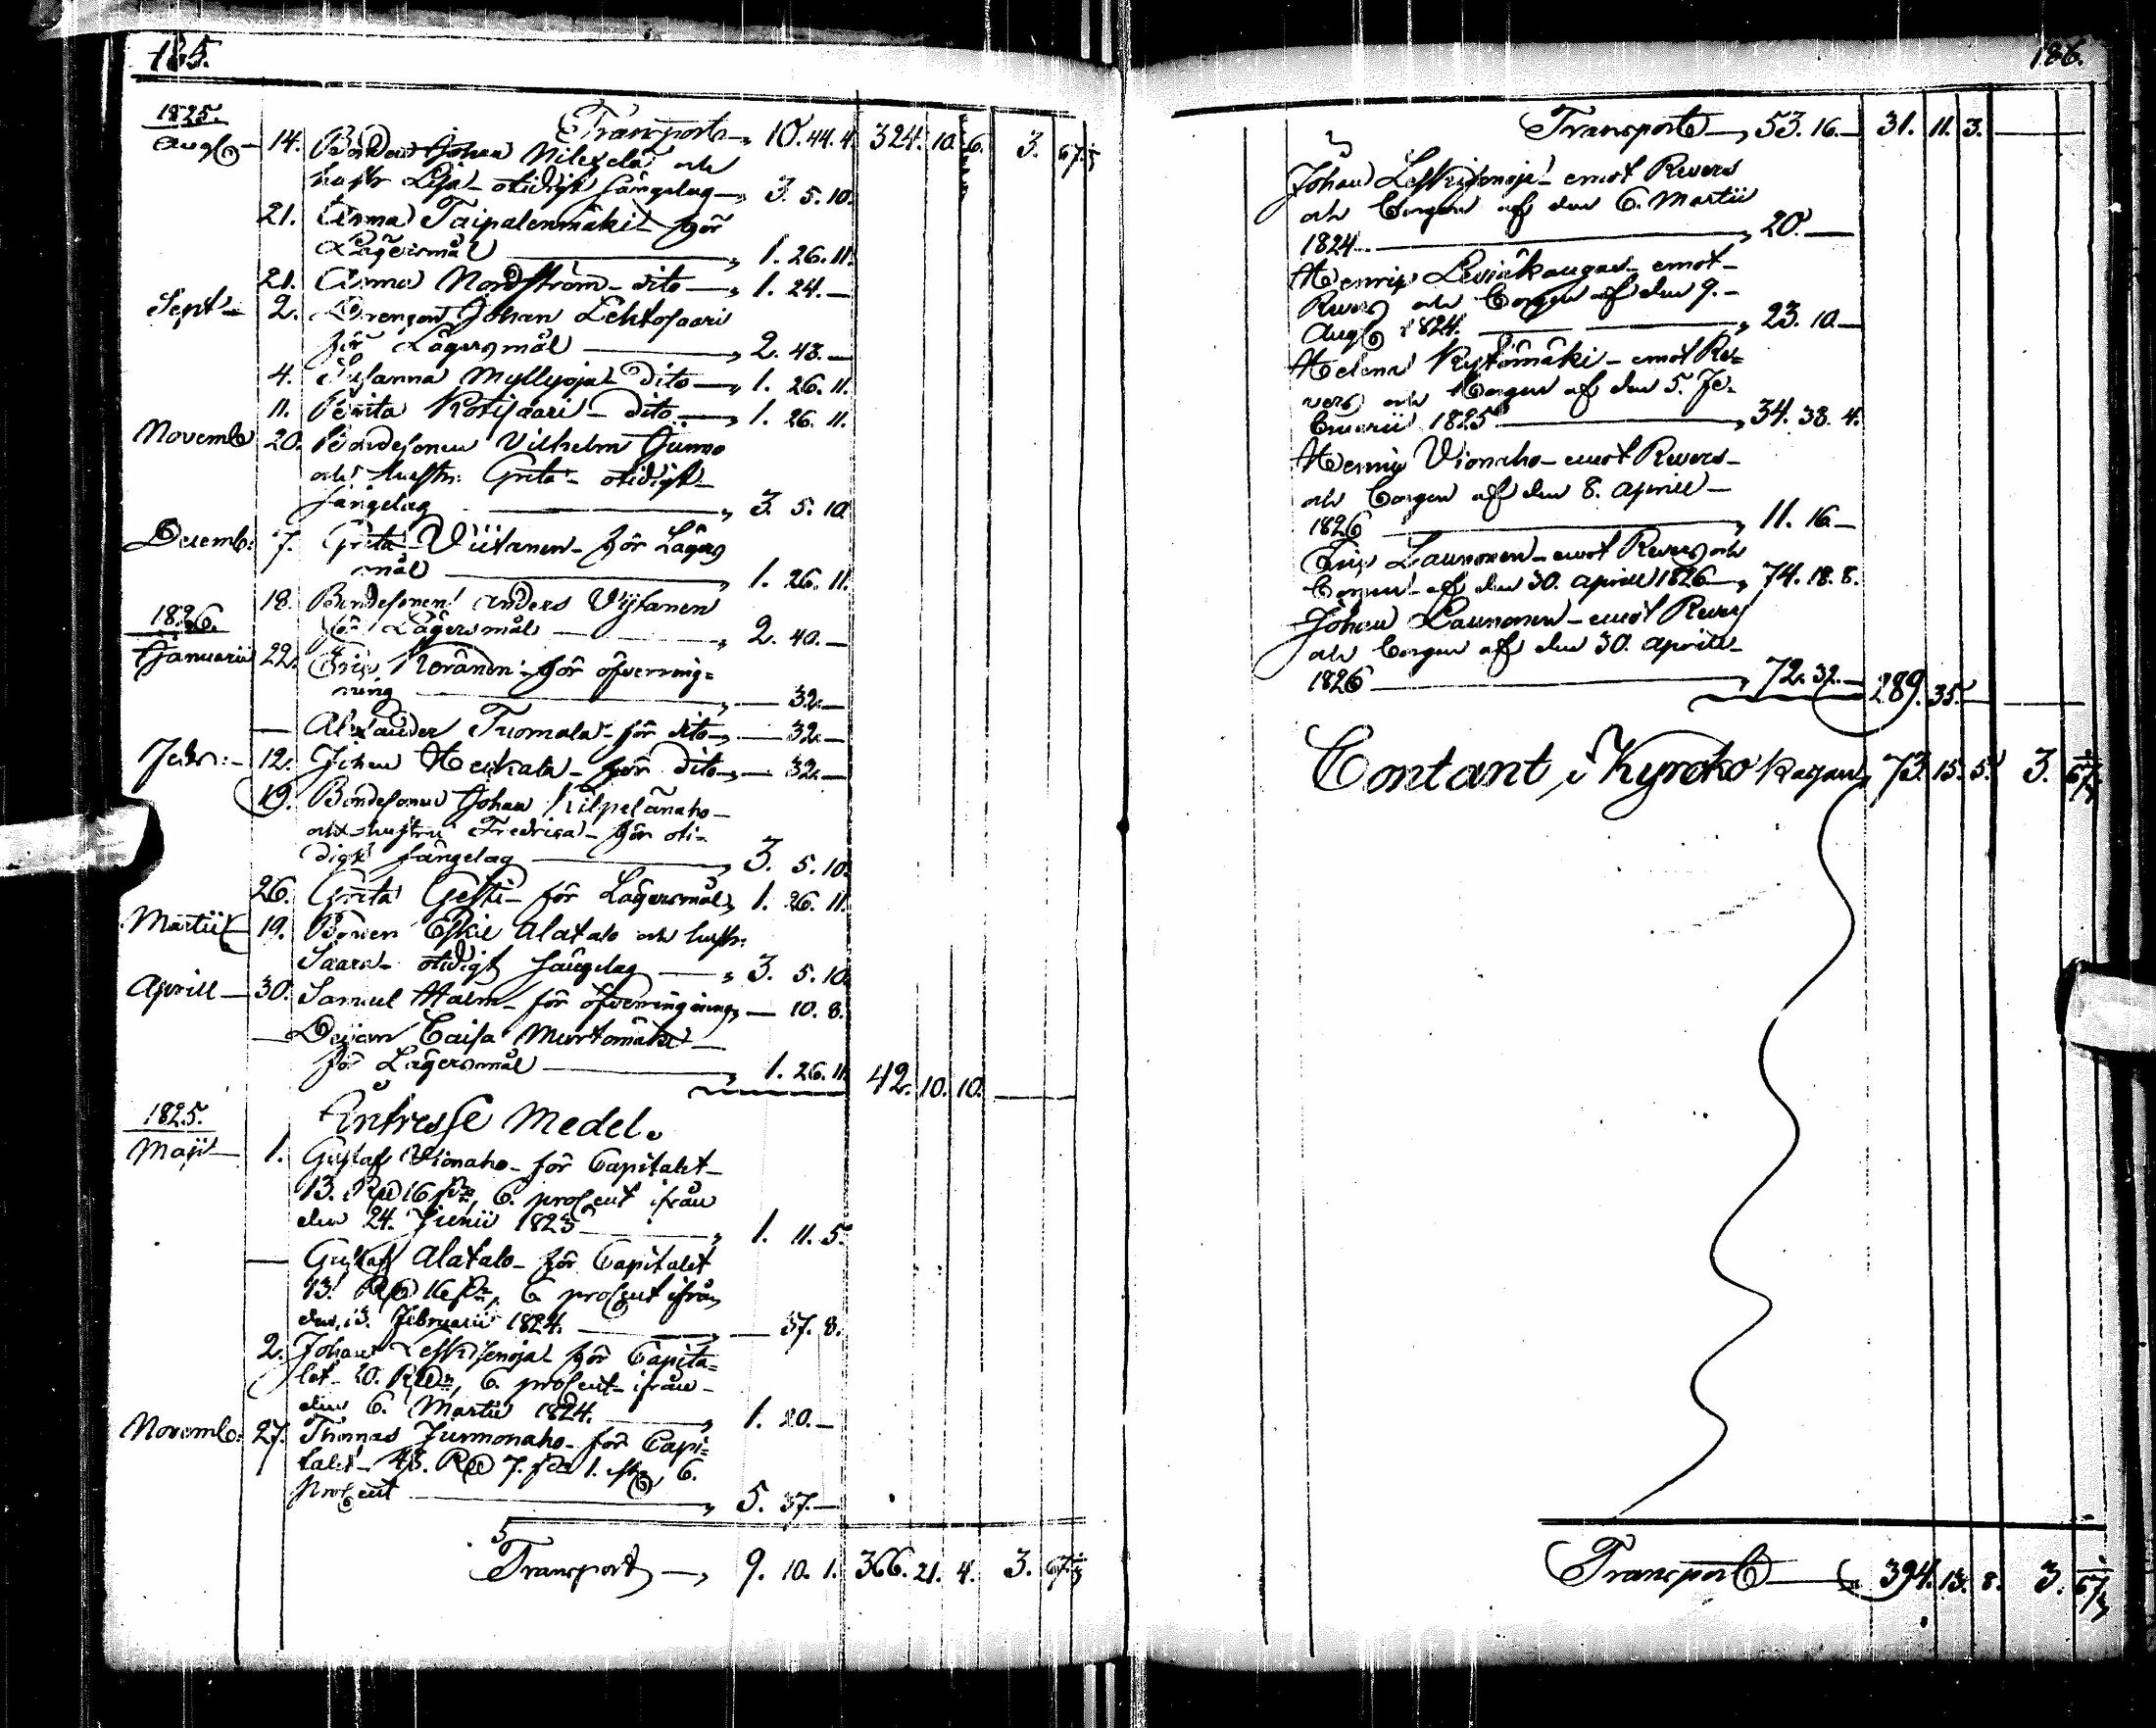 185.
1825.
Transport — 10. 44. 4. 324. 10. 6. 3. 67.
Aug. — 14. Bonden Johan Nilesela och
hustr Lisa — otidigt sängelag — 3. 5. 10.
21. Anna Taipalenmäki för
Lägersmål — 1. 26. 11.
21. Anna Nordström — dito — 1. 24. —
Sept — 2. Drengen Johan Lehtosaari
för Lägersmål — 2. 48. —
4. Susanna Myllyoja Dito — 1. 26. 11.
11. Brita Kotisaari — dito — 1. 26. 11.
Novemb 20. Bondesonen Vilhelm Junno
och hustr: Greta — otidigt
sängelag — 3. 5. 10.
Decemb: 7. Greta Viitanen — för Lägers
mål — 1. 26. 11.
18. Bondesonen Anders Vijtanen
1826.
för Lägersmål — 2. 40. —
Januarii 22. Eric Koränen — för öfverring=
ning — 32. —
— Alexander Tuomala — för dito — 32. —
Febr: — 12. Johan Heikala — för dito — 32. —
19. Bondesonen Johan Kilpelänaho
och hustru Fredrica — för oti=
digt sängelag — 3. 5. 10.
26. Greta Gesti — för Lägersmål 1. 26. 11.
Martii — 19. Bonden Eskil Alatalo och hustr:
Saara — otidigt sängelag — 3. 5. 10.
Aprill — 30. Samuel Halm — för öfverringning — 10. 8.
— Pigan Caisa Murtomäki —
för Lägersmål — 1. 26. 11. 42. 10. 10. —
1825.
Intresse Medel.
Maji — 1. Gustaf Vionaho — för Capitalet —
13. Rd 16 s., 6. procent ifrån
den 24. Junii 1823 — 1. 11. 5.
— Gustaf Alatalo — för Capitalet
13. Rd 16 s., 6. procent ifrån
den 13. Februarii 1824. — 37. 8.
2. Johan Leskisenoja för Capita=
let — 20. Rd, 6. procent — ifrån —
den 6. Martii 1824. — 1. 20. —
Novemb: 27. Thomas Junnonaho — för Capi=
talet — 48. Rd 7. s. 1. 6.
procent — 5. 37. —
Transport — 9. 10. 1. 366. 21. 4. 3. 67.
186.
Transport — 53. 16. — 31. 11. 3. —
Johan Leskisenoja — emot Revers
och Borgen af den 6. Martii
1824. — 20. —
Henric Leviäkangas — emot —
Revers och Borgen af den 9. —
Aug 1824. — 23. 10. —
Helena Kystömäki — emot Re=
vers och Borgen af den 5. Fe=
bruarii 1825 — 34. 38. 4.
Henric Vionaho — emot Revers —
och Borgen af den 8. Aprill —
1826 — 11. 16. —
Eric Launonen — emot Revers och
Borgen af den 30. Aprill 1826 — 74. 18. 8.
Johan Launonen — emot Revers
och Borgen af den 30. Aprill —
1826 — 72. 32. — 289. 35. — —
Contant i Kyrcko Kassan 73. 15. 5. 3. 67
Transport — 394. 13. 8. 3. 67